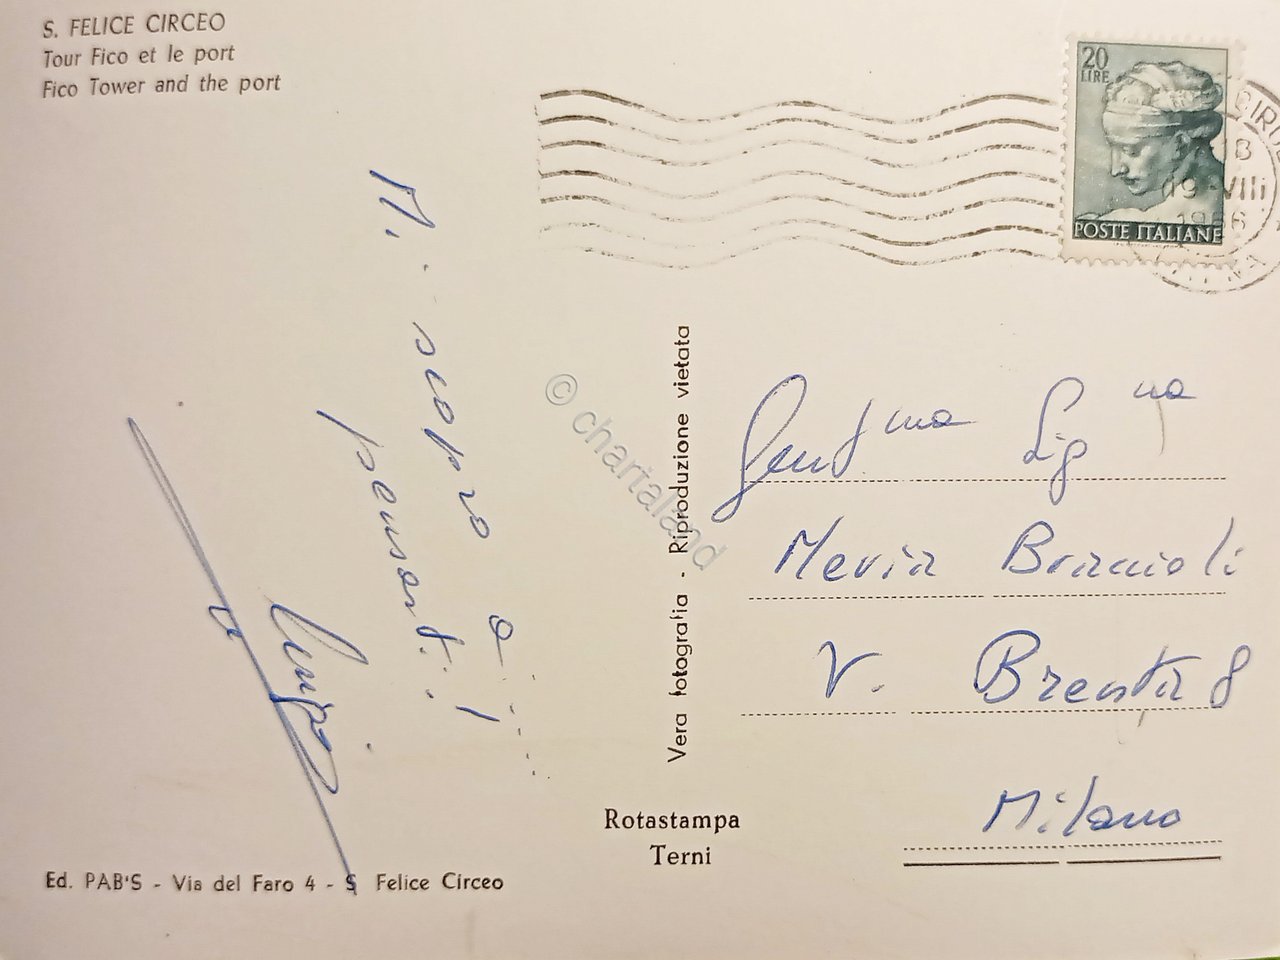 S. FELICE CIRCEO
Tour Fico et le port
Fico Tower and the port
20
LIRE
POSTE ITALIANE
18
19-VIII
1966
Mi scopro a....
pensarti!
Luigi
Vera fotografia - Riproduzione vietata
© chartaland
Gent.ma Sig.na
Braccioli
V. Brenta 8
Milano
Rotastampa
Terni
Ed. PAB'S - Via del Faro 4 - S Felice Circeo